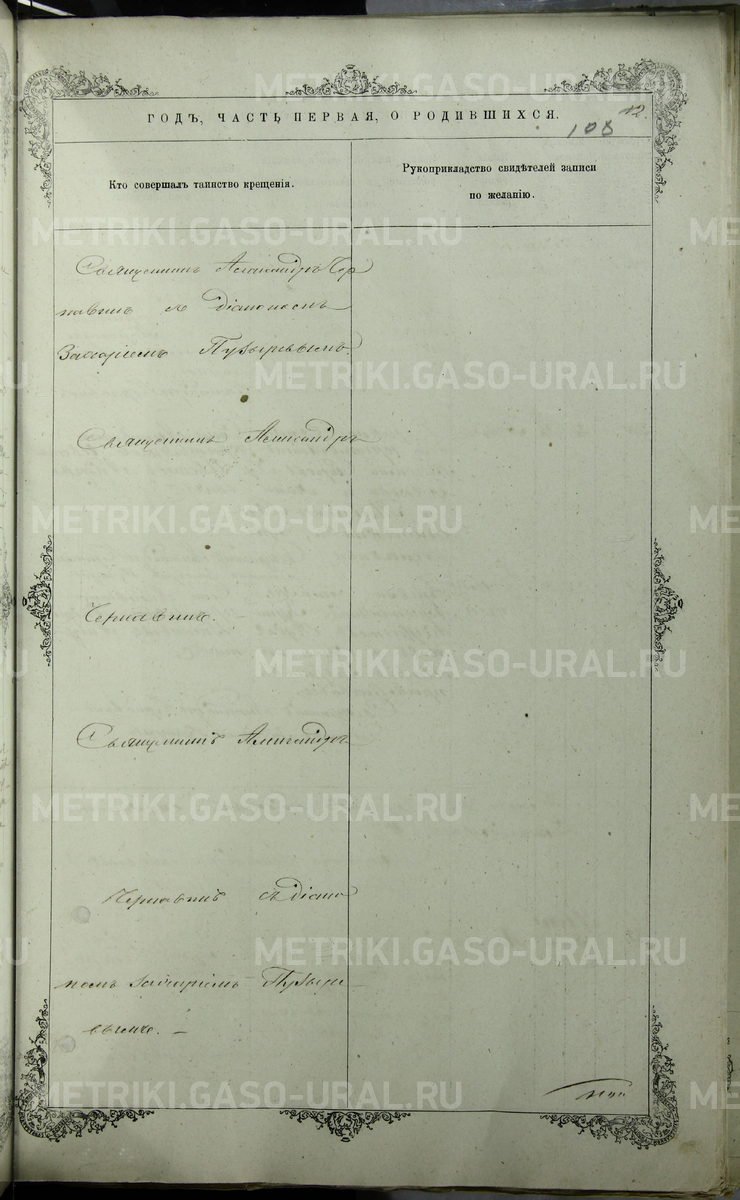 12.
108
ГОДЪ, ЧАСТЬ ПЕРВАЯ, О РОДИВШИХСЯ.
Кто совершалъ таинство крещенія.
Рукоприкладство свидѣтелей записи
по желанію.
Священникъ Александръ Чер
навинъ съ діакономъ
Захаріемъ Пузыревымъ.
Священникъ Александръ
Чернавинъ.
Священникъ Александръ
Чернавинъ съ діако
номъ Захаріемъ Пузыре
вымъ. —
METRIKI.GASO-URAL.RU